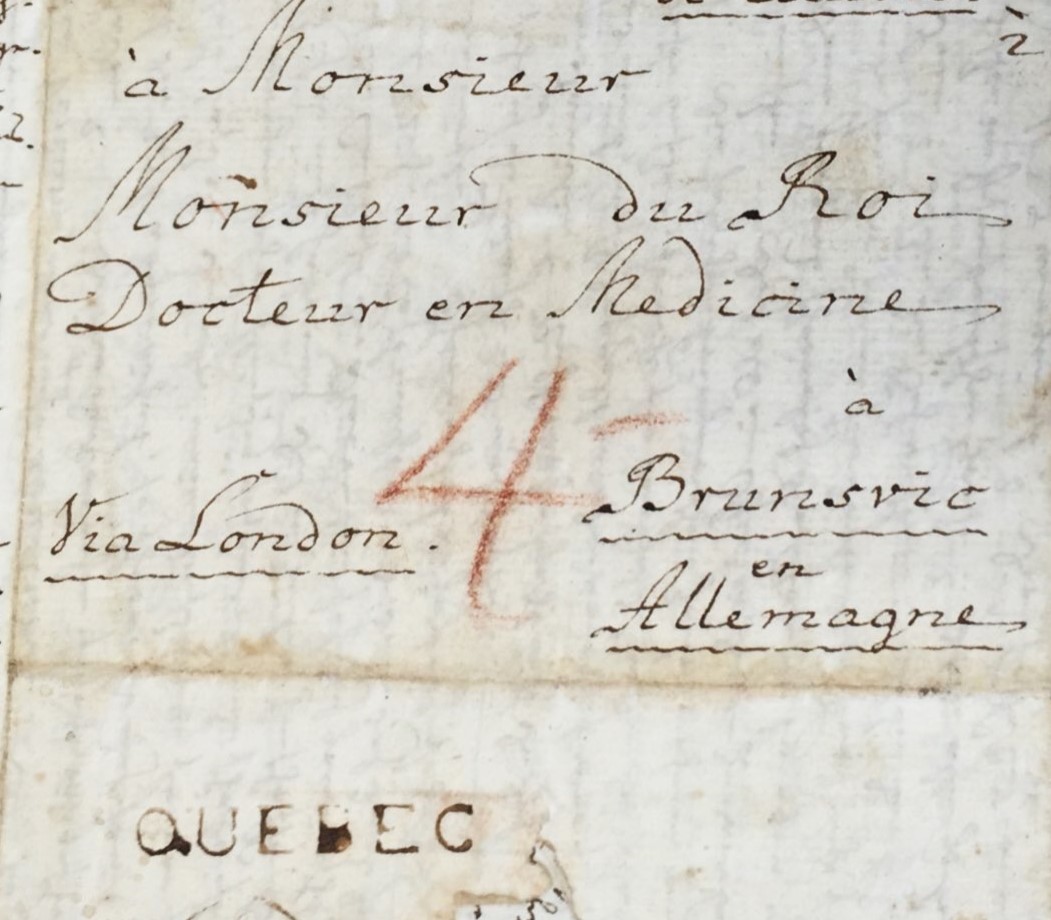 à
à Monsieur
Monsieur du Roi
Docteur en Medicine
à
4
Brunsvic
Via London.
en
Allemagne
QUEBEC